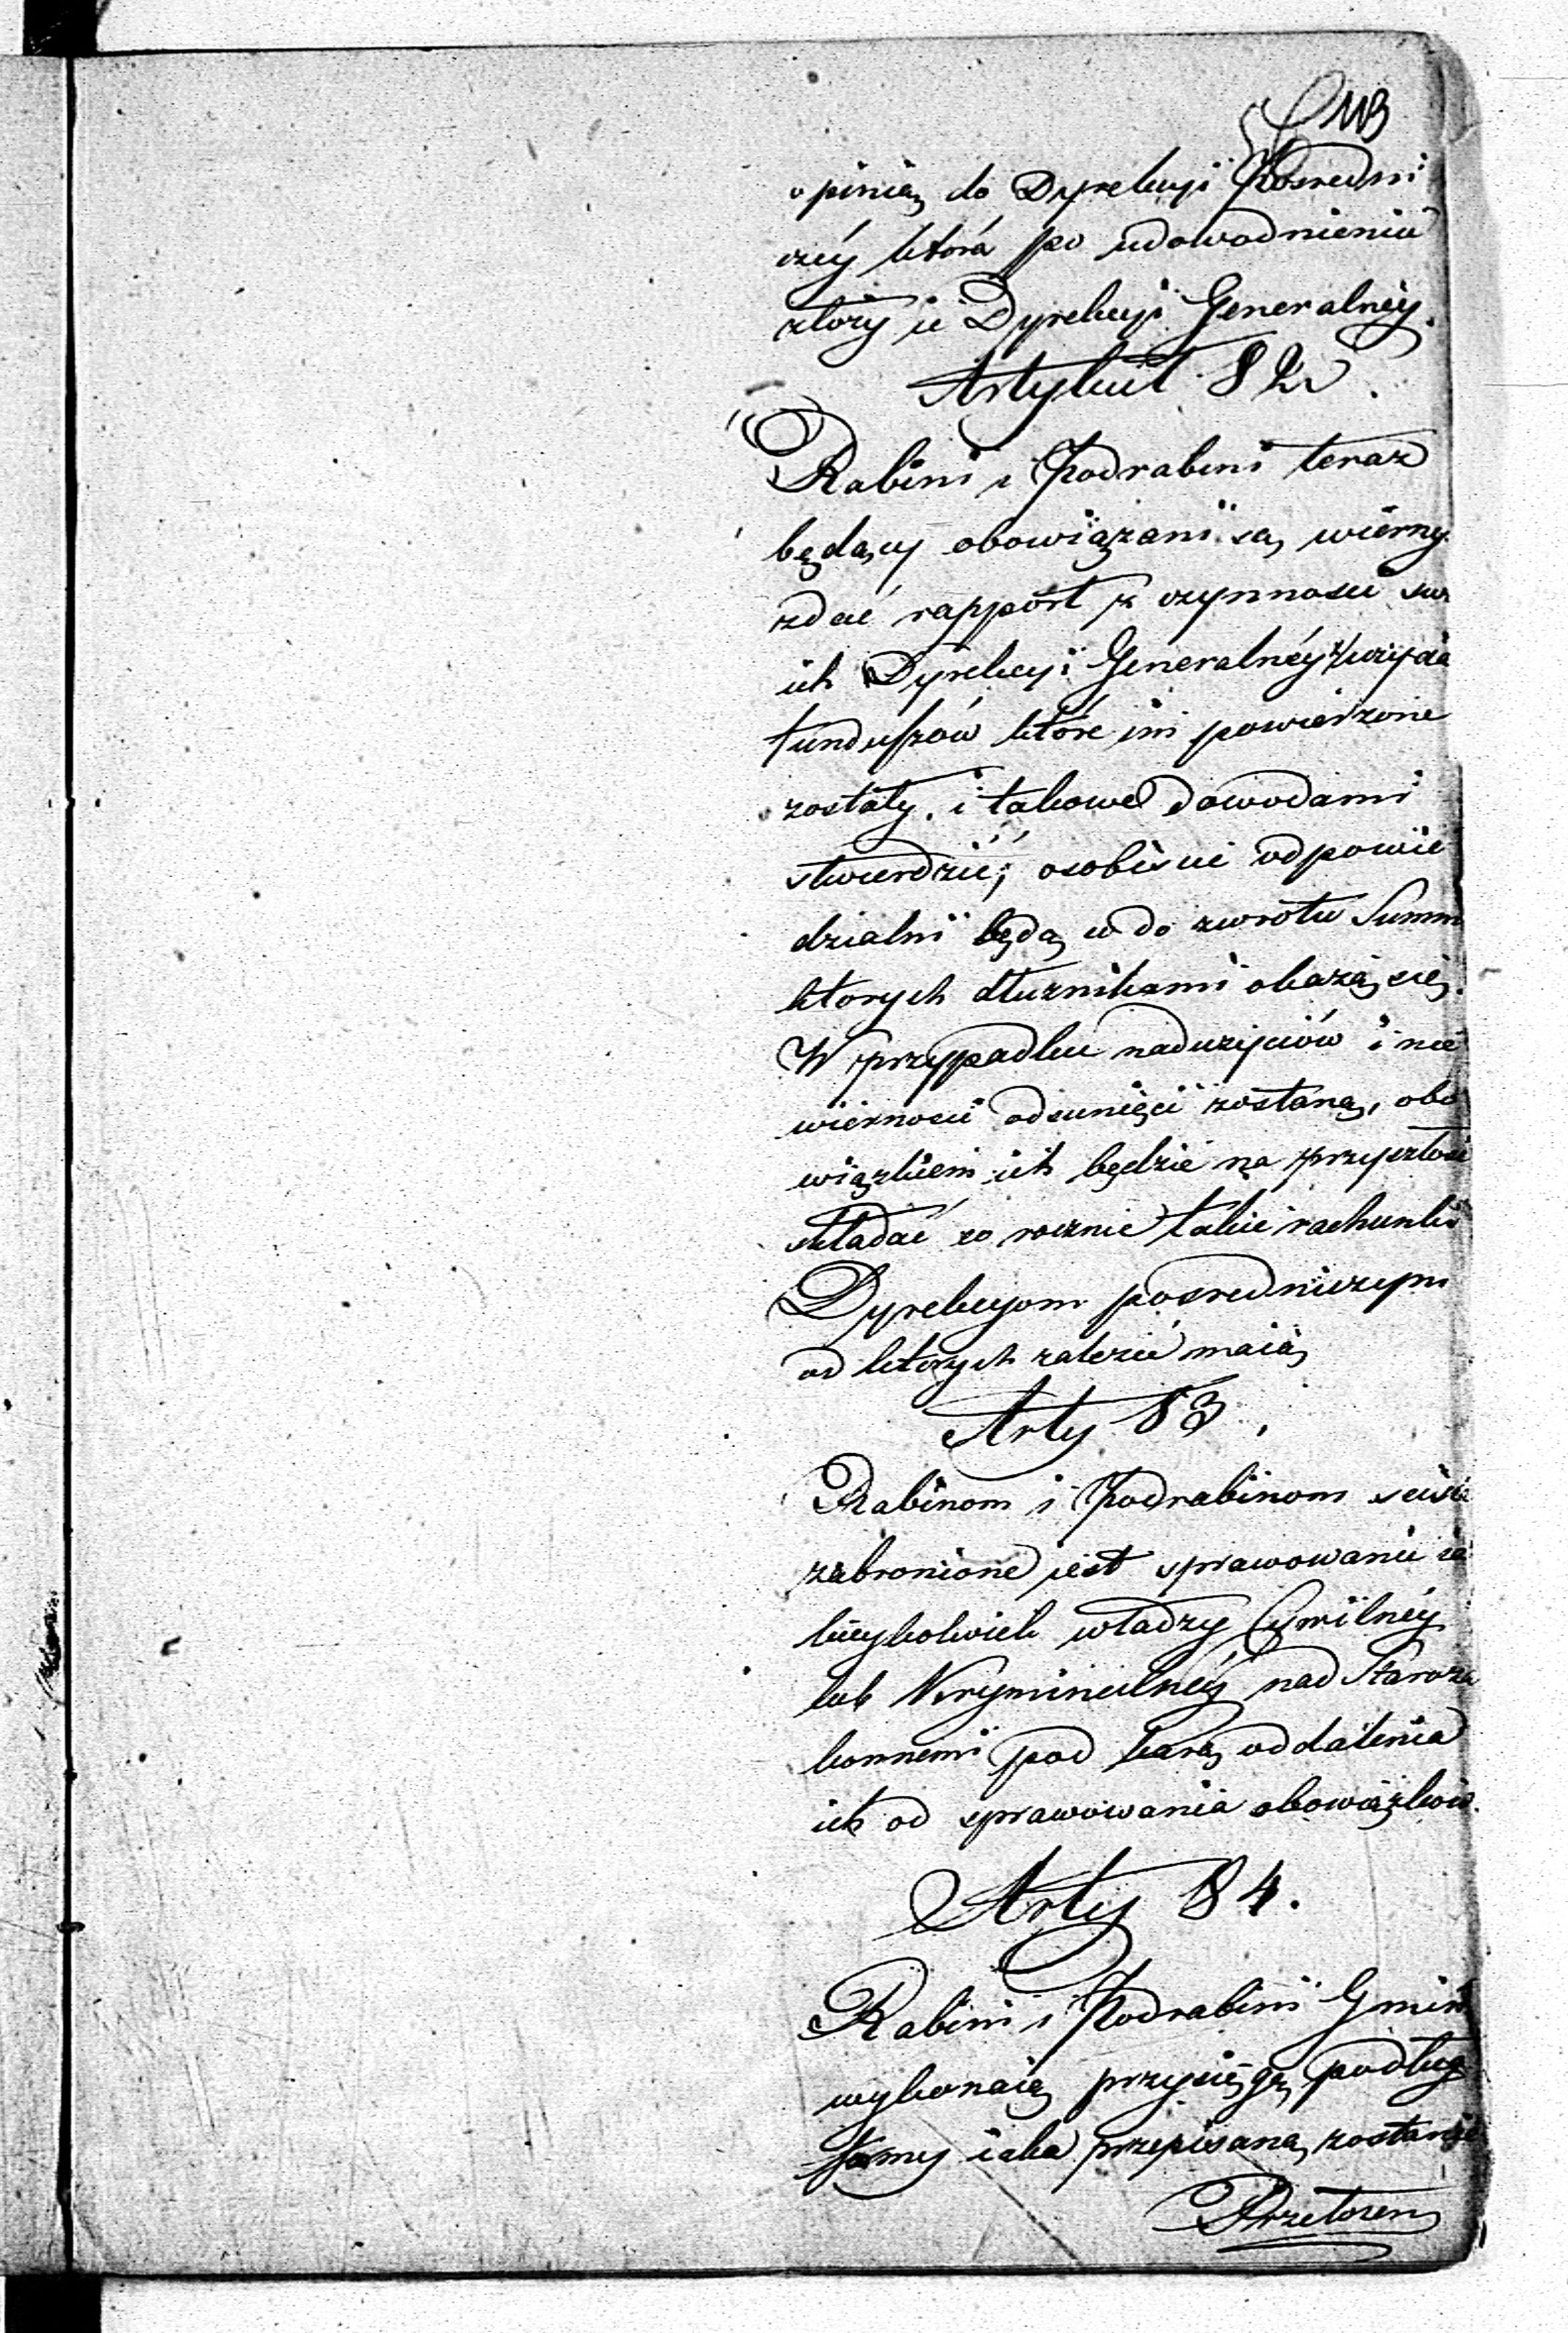 113
opinią do Dyrekcyi Posredni
czéy która po udowodnieniu
złoży ie Dyrekcyi Generalnéy.
Artykuł 82.
Rabini i Podrabini teraz
będący obowiązani są wierny
zdać rapport z czynnosci swo
ich Dyrekcyi Generalnéy z użycia
funduszów które im powierzone
zostały. i takowe dowodami
stwierdzić, osobiscie odpowie
dzialni będą do zwrotu Summ
ktorych dłuznikami okażą się.
W przypadku naduzyciów i nie
wiernosci odsunięci zostaną, obo
wiązkiem ich będzie na przyszłość
składać co rocznie takie rachunki
Dyrekcyom posredniczym
od ktorych zależeć maią
Arty 83.
Rabinom i Podrabinom scisle
zabronione jest sprawowanie ia
kieykolwiek władzy Cywilnéy
lub Kryminalnéy nad Staroza
konnemi pod karą oddalenia
ich od sprawowania obowiązków.
Arty 84.
Rabini i Podrabini Gmin
wykonaią przysięgę podług
formy iaka przepisaną zostanie
Przełożen